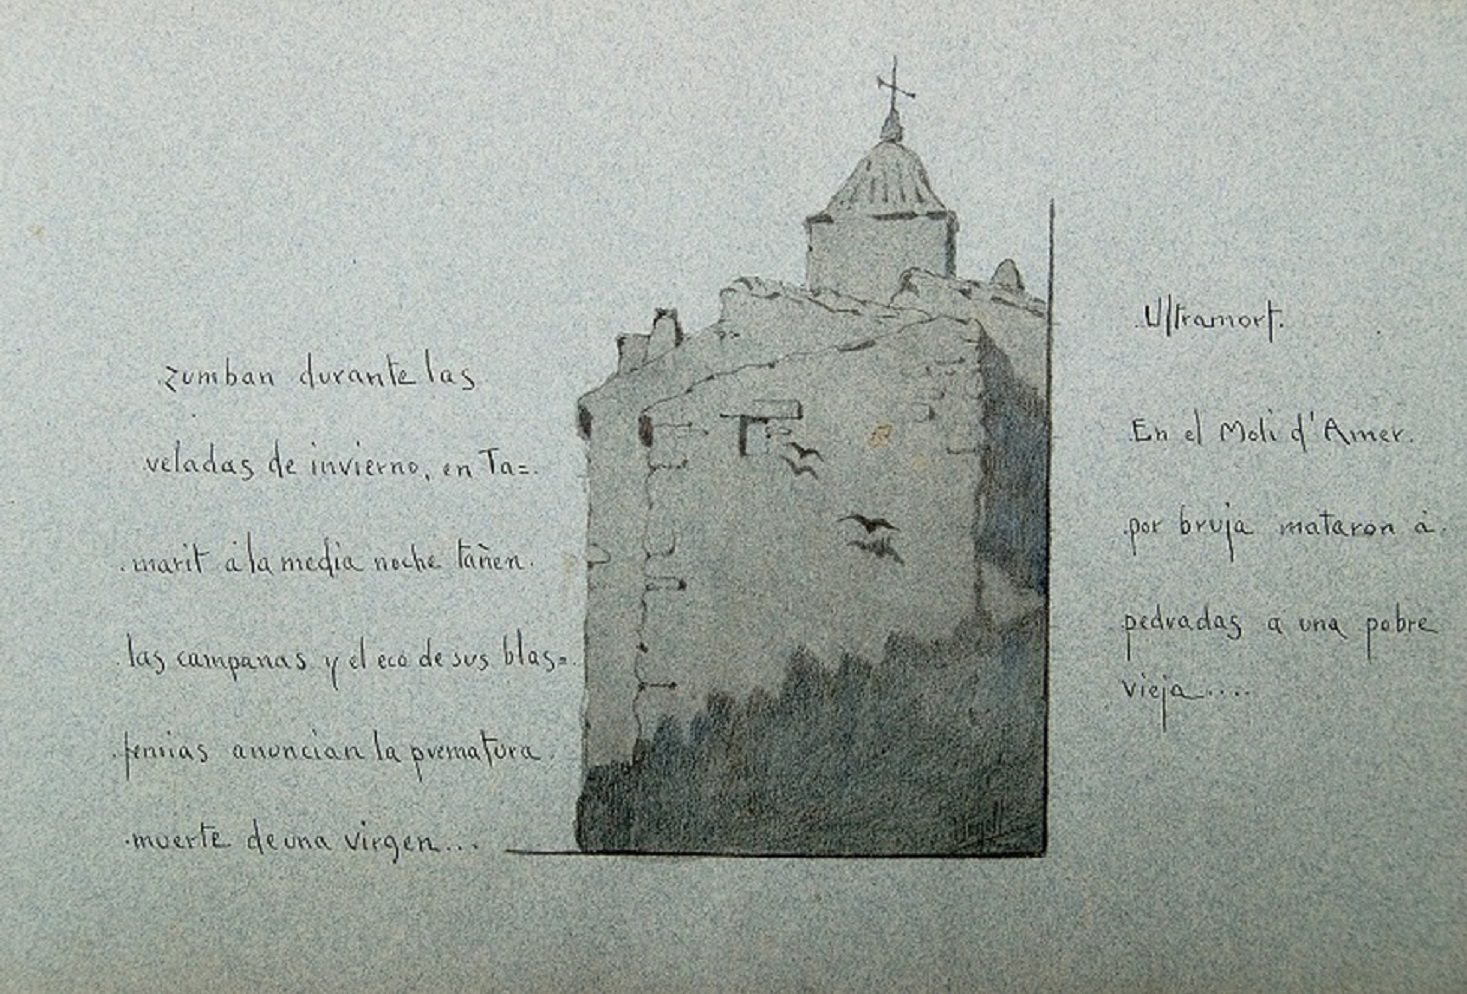 zumban durante las
veladas de invierno, en Ta=
marit á la media noche tañen
las campanas y el eco de sus blas=
femias anuncian la prematura
muerte de una virgen...
Ultramort.
En el Molí d'Amer.
por bruja mataron á
pedradas a una pobre
vieja....